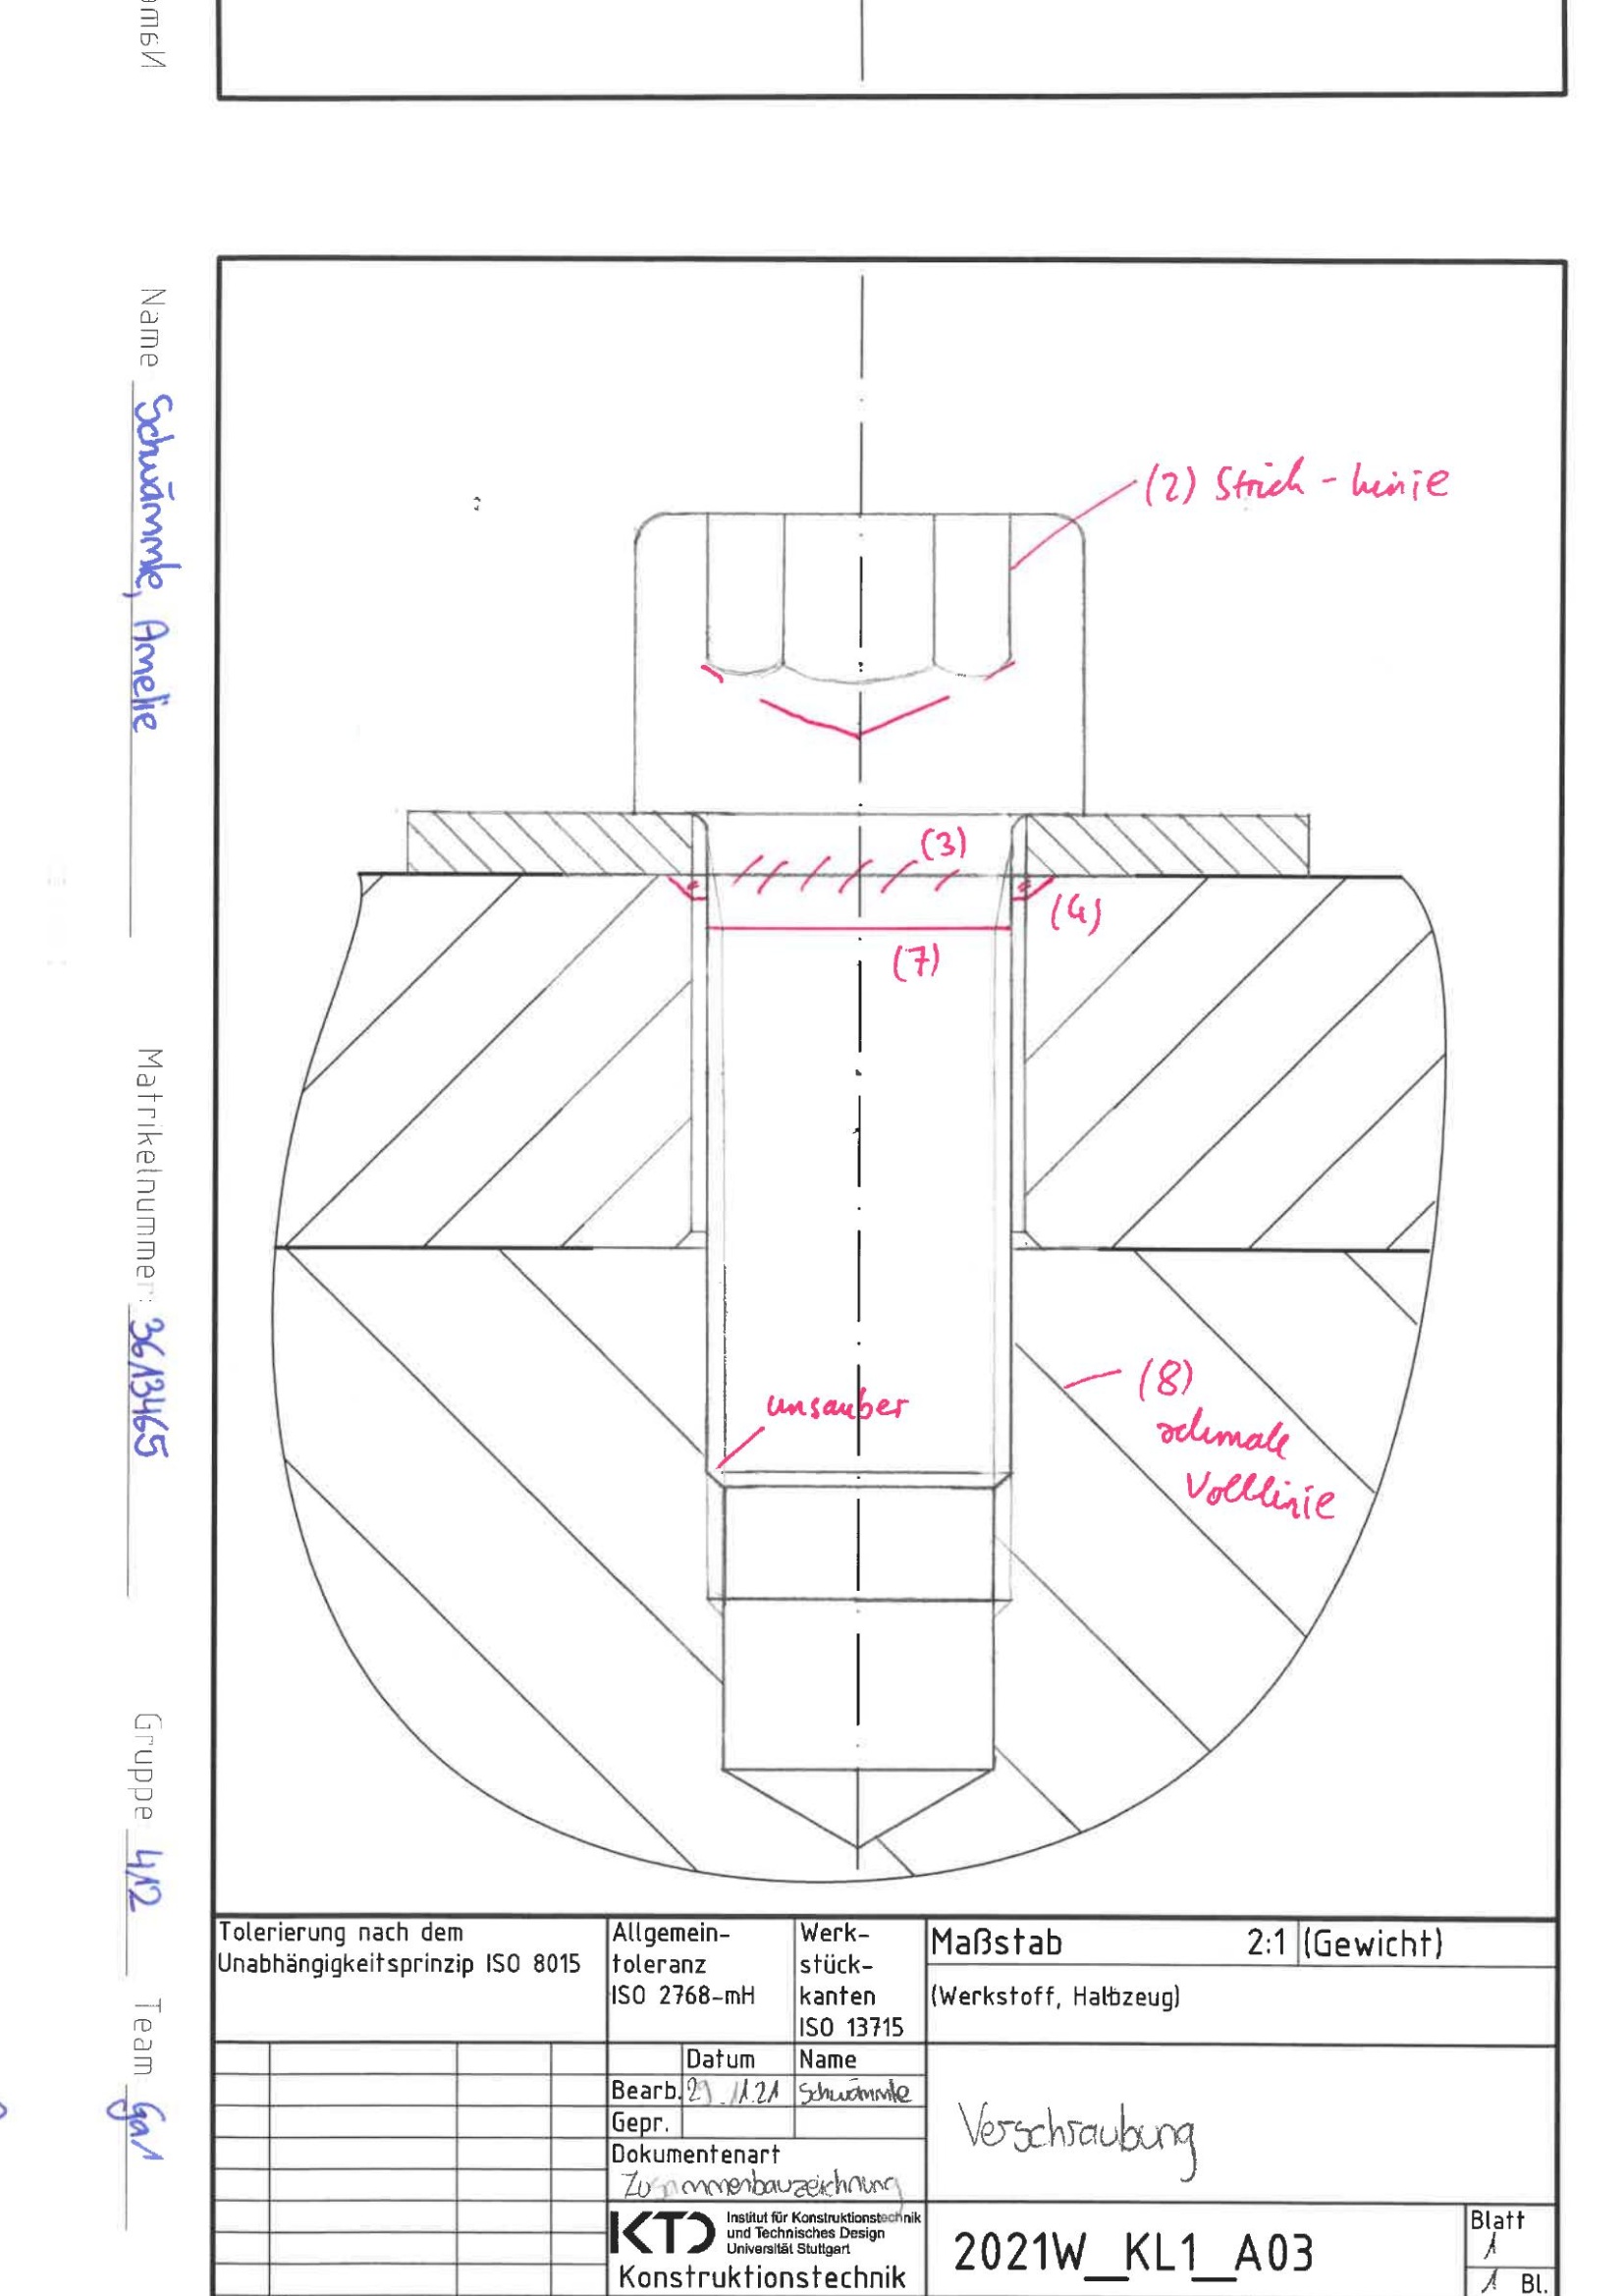 Name
Name Schwämmle, Amelie
Matrikelnummer: 3613465
Gruppe 4,12
Team Ga1
(2) Strich-linie
(3)
(4)
(7)
unsauber
(8)
schmale
Volllinie
Tolerierung nach dem
Unabhängigkeitsprinzip ISO 8015
Allgemein-
toleranz
ISO 2768-mH
Werk-
stück-
kanten
ISO 13715
Maßstab 2:1 (Gewicht)
(Werkstoff, Halbzeug)
Datum Name
Bearb. 29.11.21 Schwämmle
Gepr.
Dokumentenart
Zusammenbauzeichnung
Verschraubung
KTD
Institut für Konstruktionstechnik
und Technisches Design
Universität Stuttgart
Konstruktionstechnik
2021W_KL1_A03
Blatt
1
1 Bl.